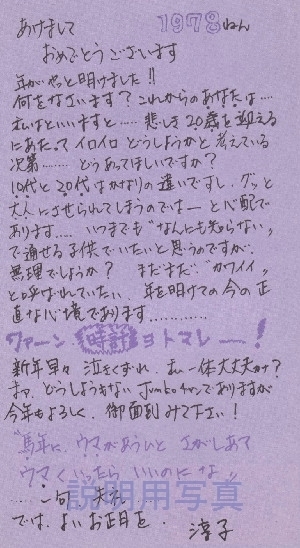 あけまして 1978ねん
おめでとうございます
年がやっと明けました!!
何をなさいます? これからのあなたは……
私はといいますと…… 悲しき20歳を迎える
にあたって イロイロ どうしようかと 考えている
次第……… どうあってほしいですか?
10代と20代はかなりの違いですし、グッと
大人にさせられてしまうのでは― と心配で
あります…… いつまでも"なんにも知らない"
で通せる子供でいたいと思うのですが、
無理でしょうか? まだまだ"カワイイ"
と呼ばれていたい、年を明けての今の正
直な心境であります…………
ワァーン 時計 ヨ トマレ――!
新年早々 泣きくずれ、私一体大丈夫か?
まァ、どうしようもない Jumboチャンでありますが
今年もよろしく、御面到みて下さい!
"馬年に、ウマがあうひと さがしあて
ウマくいったら いいのにな"
……一句
では、よいお正月を、 淳子
説明用写真